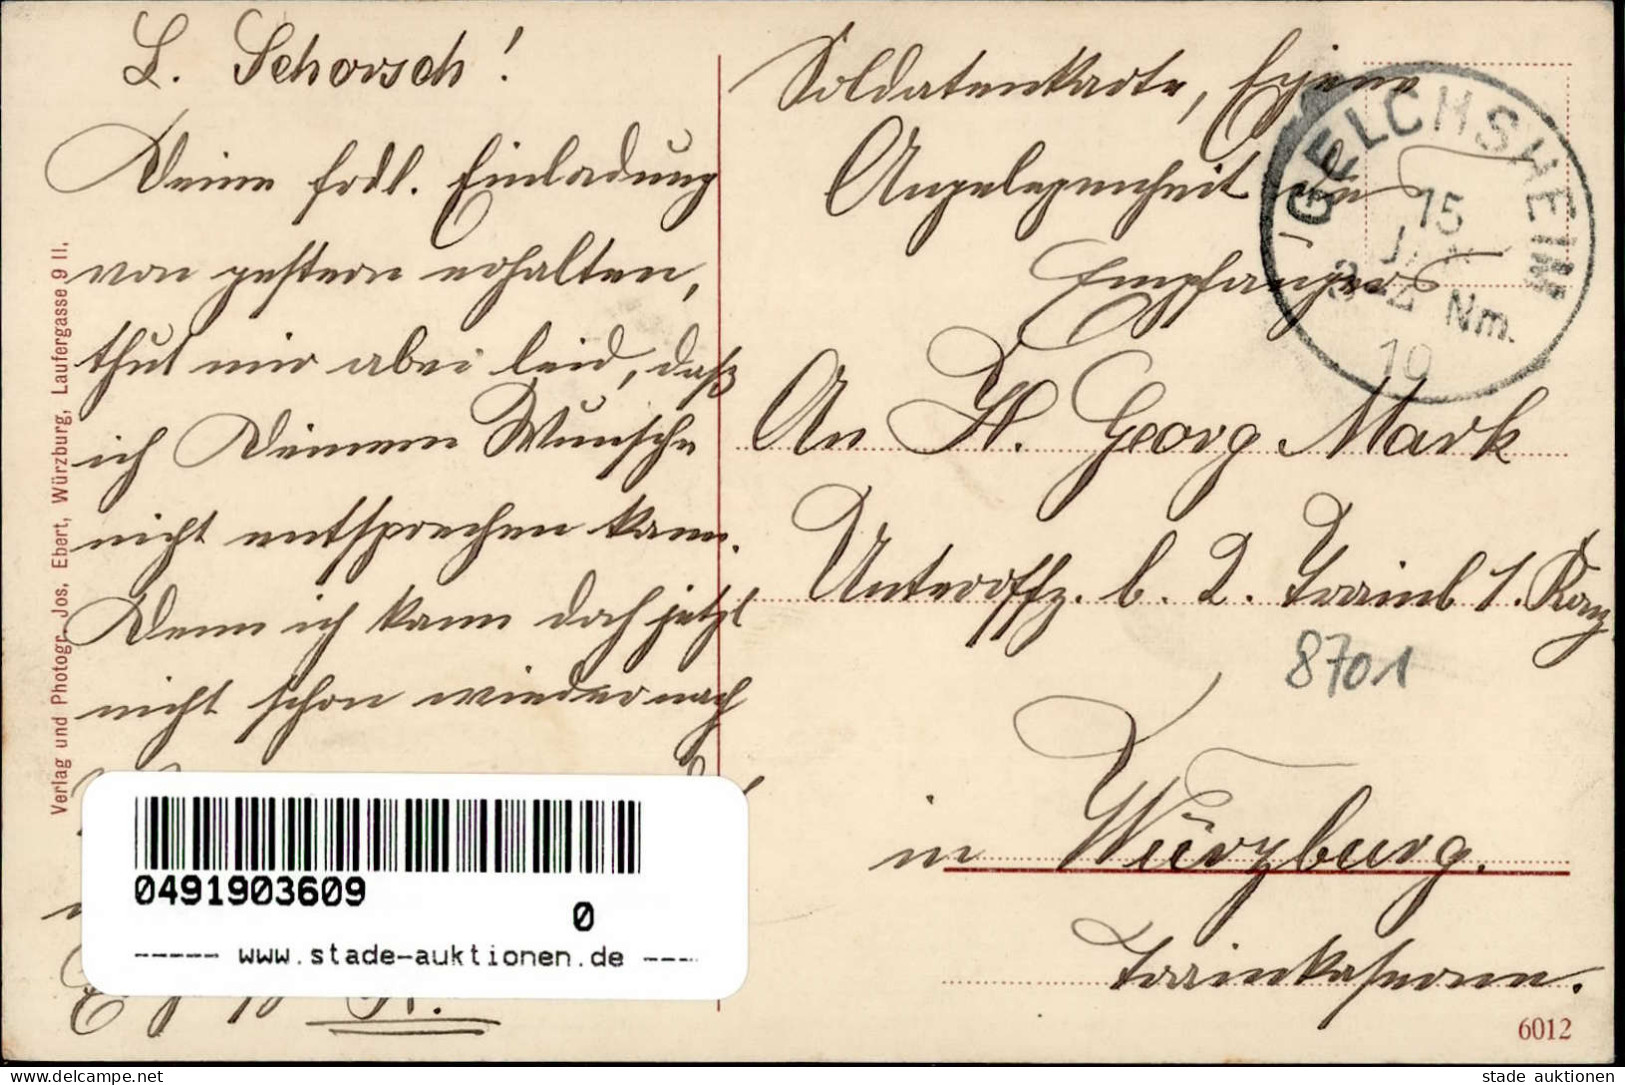 L. Schorsch!
Deine frdl. Einladung
von gestern erhalten,
thut mir aber leid, daß
ich Deinem Wunsche
nicht entsprechen kann.
Denn ich kann doch jetzt
nicht schon wieder nach
Verlag und Photogr. Jos. Ebert, Würzburg, Laufergasse 9 II.
Soldatenkarte, Eigene
Angelegenheit des
Empfängers
IGELCHSHEIM
15
JAN
Nm.
10
An H. Georg Mark
Unteroffz. b. 2. Trainb 1.
8701
in Würzburg.
Trainkaserne.
6012
0491903609
0
----- www.stade-auktionen.de ----
www.delcampe.net
stade auktionen